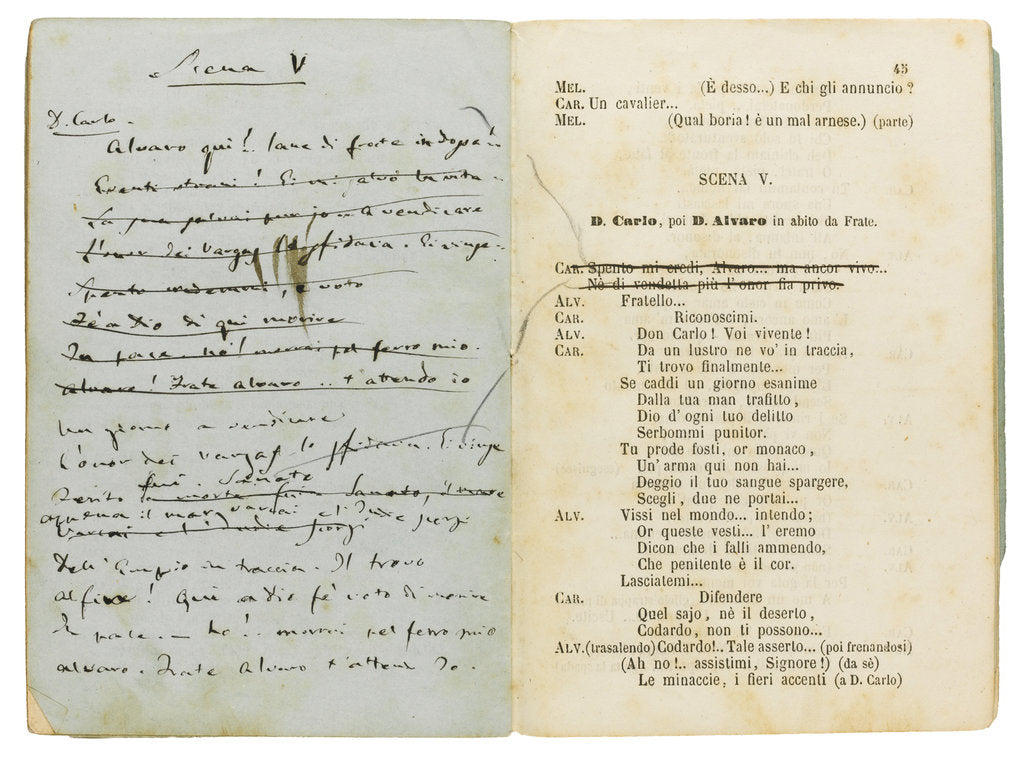 Scena V
D. Carlo.
Alvaro qui! lane di frate indossa!
Eventi strani! Ei mi salvò la vita
La sua salvai pur io
L'onor dei Vargas lo sfidava. Ei vinse
Spento, e voto
Fè a Dio di qui morire
In pace. no! morrai pel ferro mio.
Alvaro! Frate Alvaro .. t'attendo io
Un giorno a vendicare
L'onor dei Vargas lo sfidava. Ei vinse
fui. Sanato
Ferito a morte fui Sanato, il mare
appena il mar varcai e l'Indie scorsi
Varcai e l'Indie scorsi
Dell'empio in traccia. Il trovo
Alfine! Qui a Dio fè voto di morire
In pace — no!.. morrai pel ferro mio
Alvaro. Frate Alvaro t'attendo Io.
45
MEL. (È desso...) E chi gli annuncio?
CAR. Un cavalier...
MEL. (Qual boria! è un mal arnese.) (parte)
SCENA V.
D. Carlo, poi D. Alvaro in abito da Frate.
CAR. Spento mi credi, Alvaro... ma ancor vivo...
Nè di vendetta più l'onor fia privo.
ALV. Fratello...
CAR. Riconoscimi.
ALV. Don Carlo! Voi vivente!
CAR. Da un lustro ne vo' in traccia,
Ti trovo finalmente...
Se caddi un giorno esanime
Dalla tua man trafitto,
Dio d'ogni tuo delitto
Serbommi punitor.
Tu prode fosti, or monaco,
Un'arma qui non hai...
Deggio il tuo sangue spargere,
Scegli, due ne portai...
ALV. Vissi nel mondo... intendo;
Or queste vesti... l'eremo
Dicon che i falli ammendo,
Che penitente è il cor.
Lasciatemi...
CAR. Difendere
Quel sajo, nè il deserto,
Codardo, non ti possono...
ALV.(trasalendo) Codardo!.. Tale asserto... (poi frenandosi)
(Ah no!.. assistimi, Signore!) (da sè)
Le minaccie, i fieri accenti (a D. Carlo)